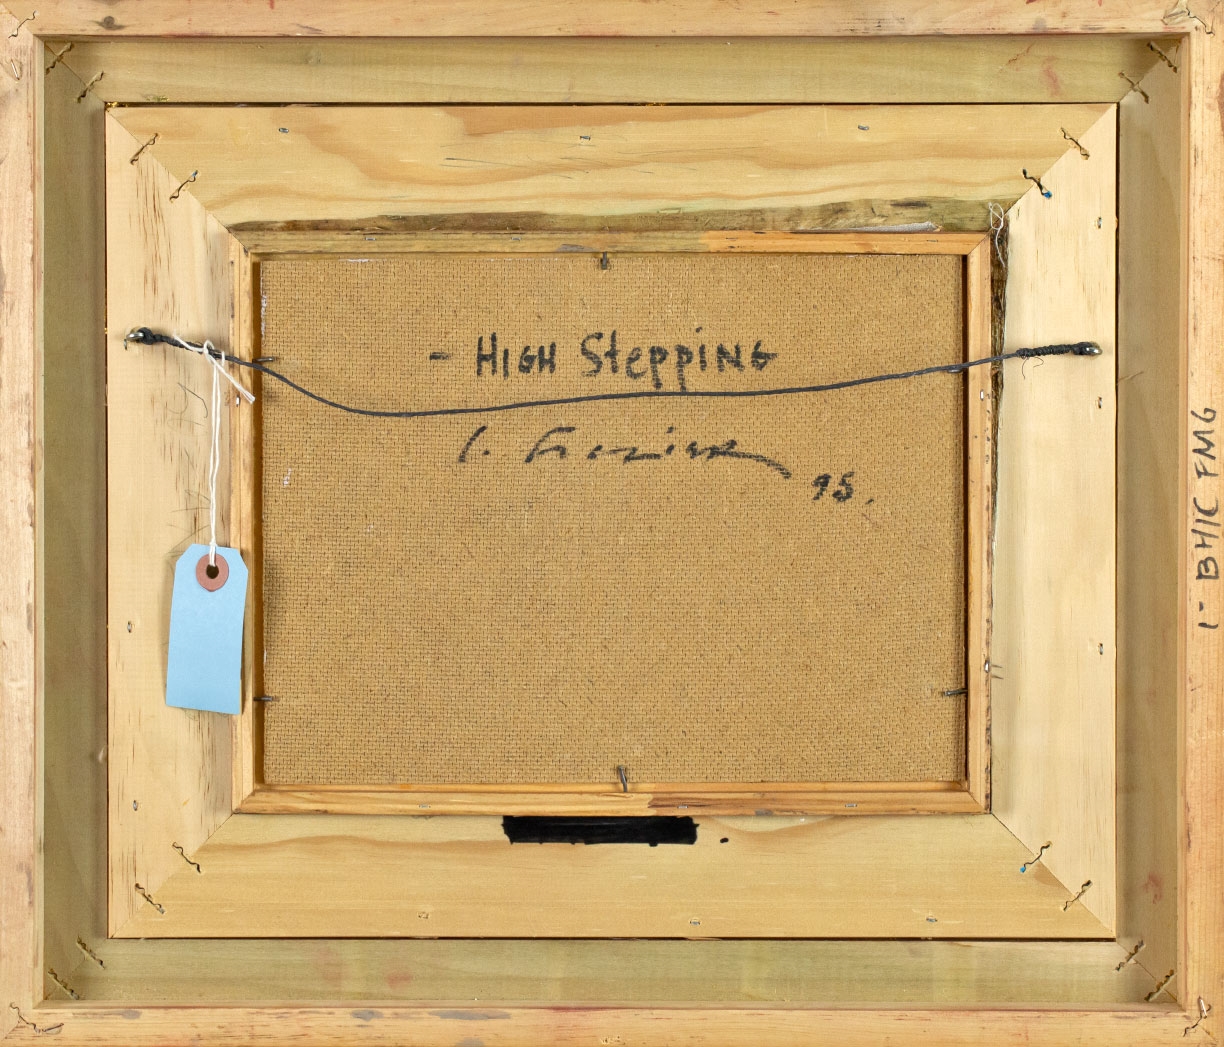 - HIGH Stepping
L. Frazier
95.
1" BHIC FMG